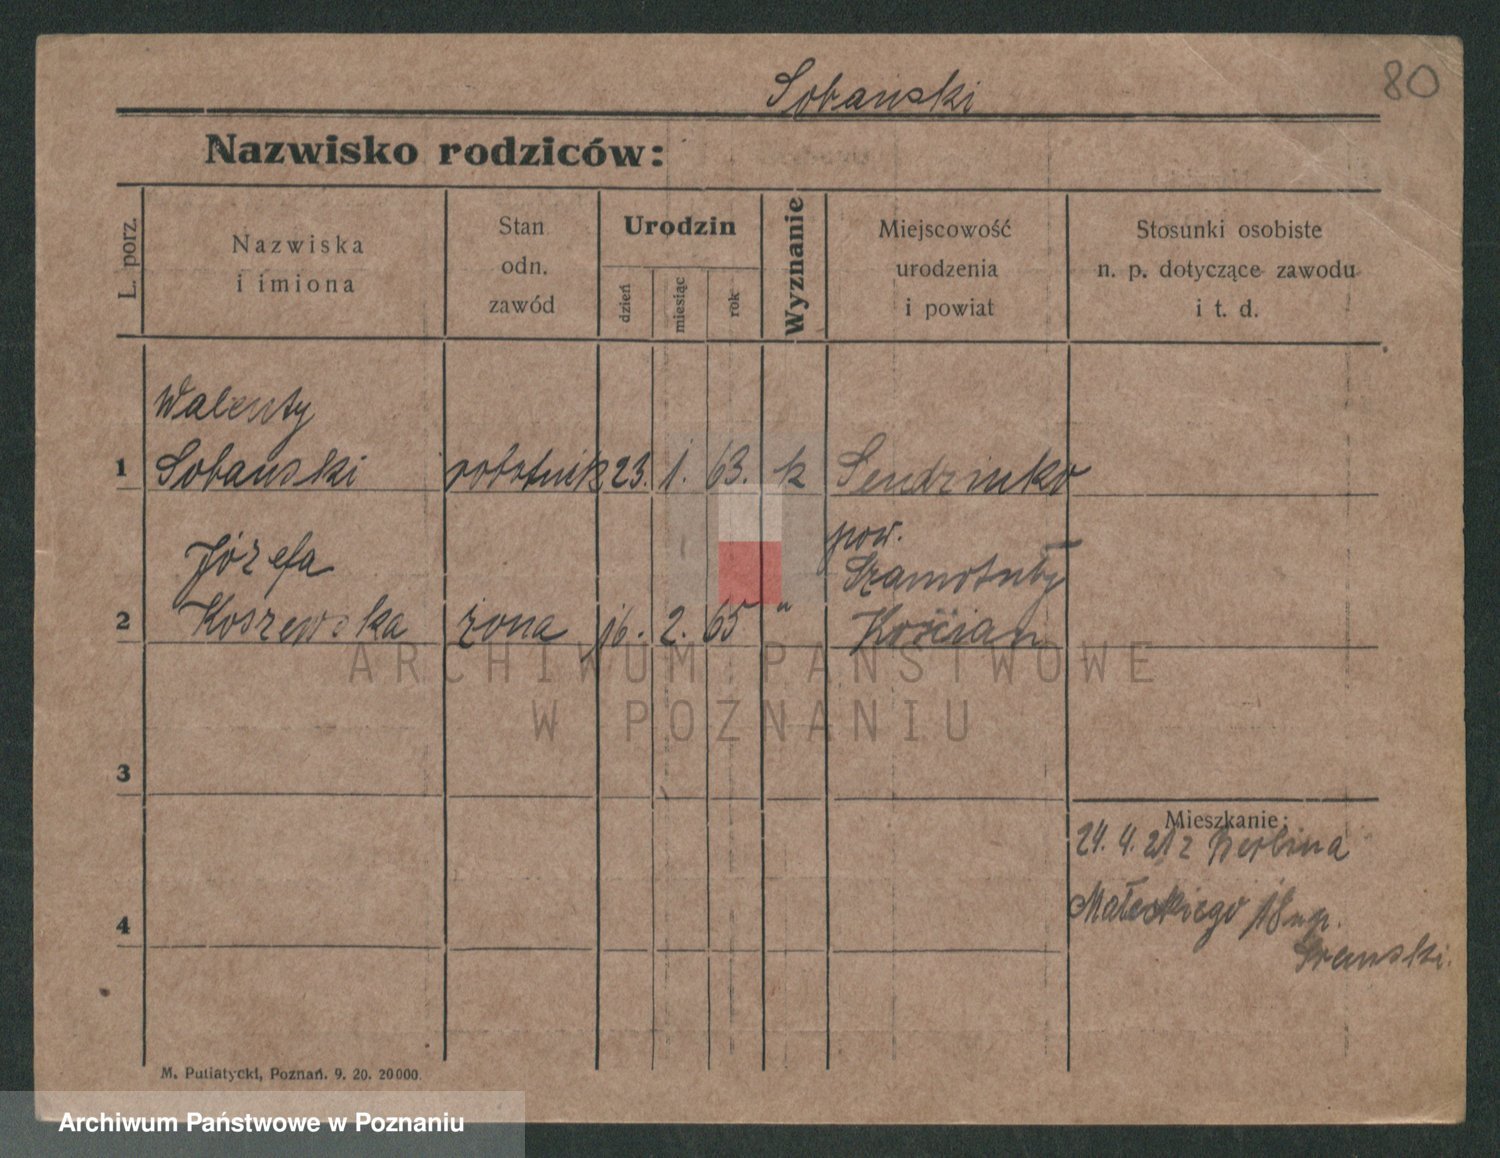 80
Sobański
Nazwisko rodziców:
L. porz.
Nazwiska
i imiona
Stan
odn.
zawód
Urodzin
dzień
miesiąc
rok
Wyznanie
Miejscowość
urodzenia
i powiat
Stosunki osobiste
n. p. dotyczące zawodu
i t. d.
Walenty
1 Sobański robotnik 23. 1. 63. k Sendzinko
pow.
Józefa Szamotuły
2 Koszewska żona 16. 2. 65 " Kościan
ARCHIWUM PAŃSTWOWE
W POZNANIU
3
Mieszkanie:
24. 4. 21 z Berlina
4 Małeckiego 18 up.
M. Putiatycki, Poznań. 9. 20. 20000.
Archiwum Państwowe w Poznaniu